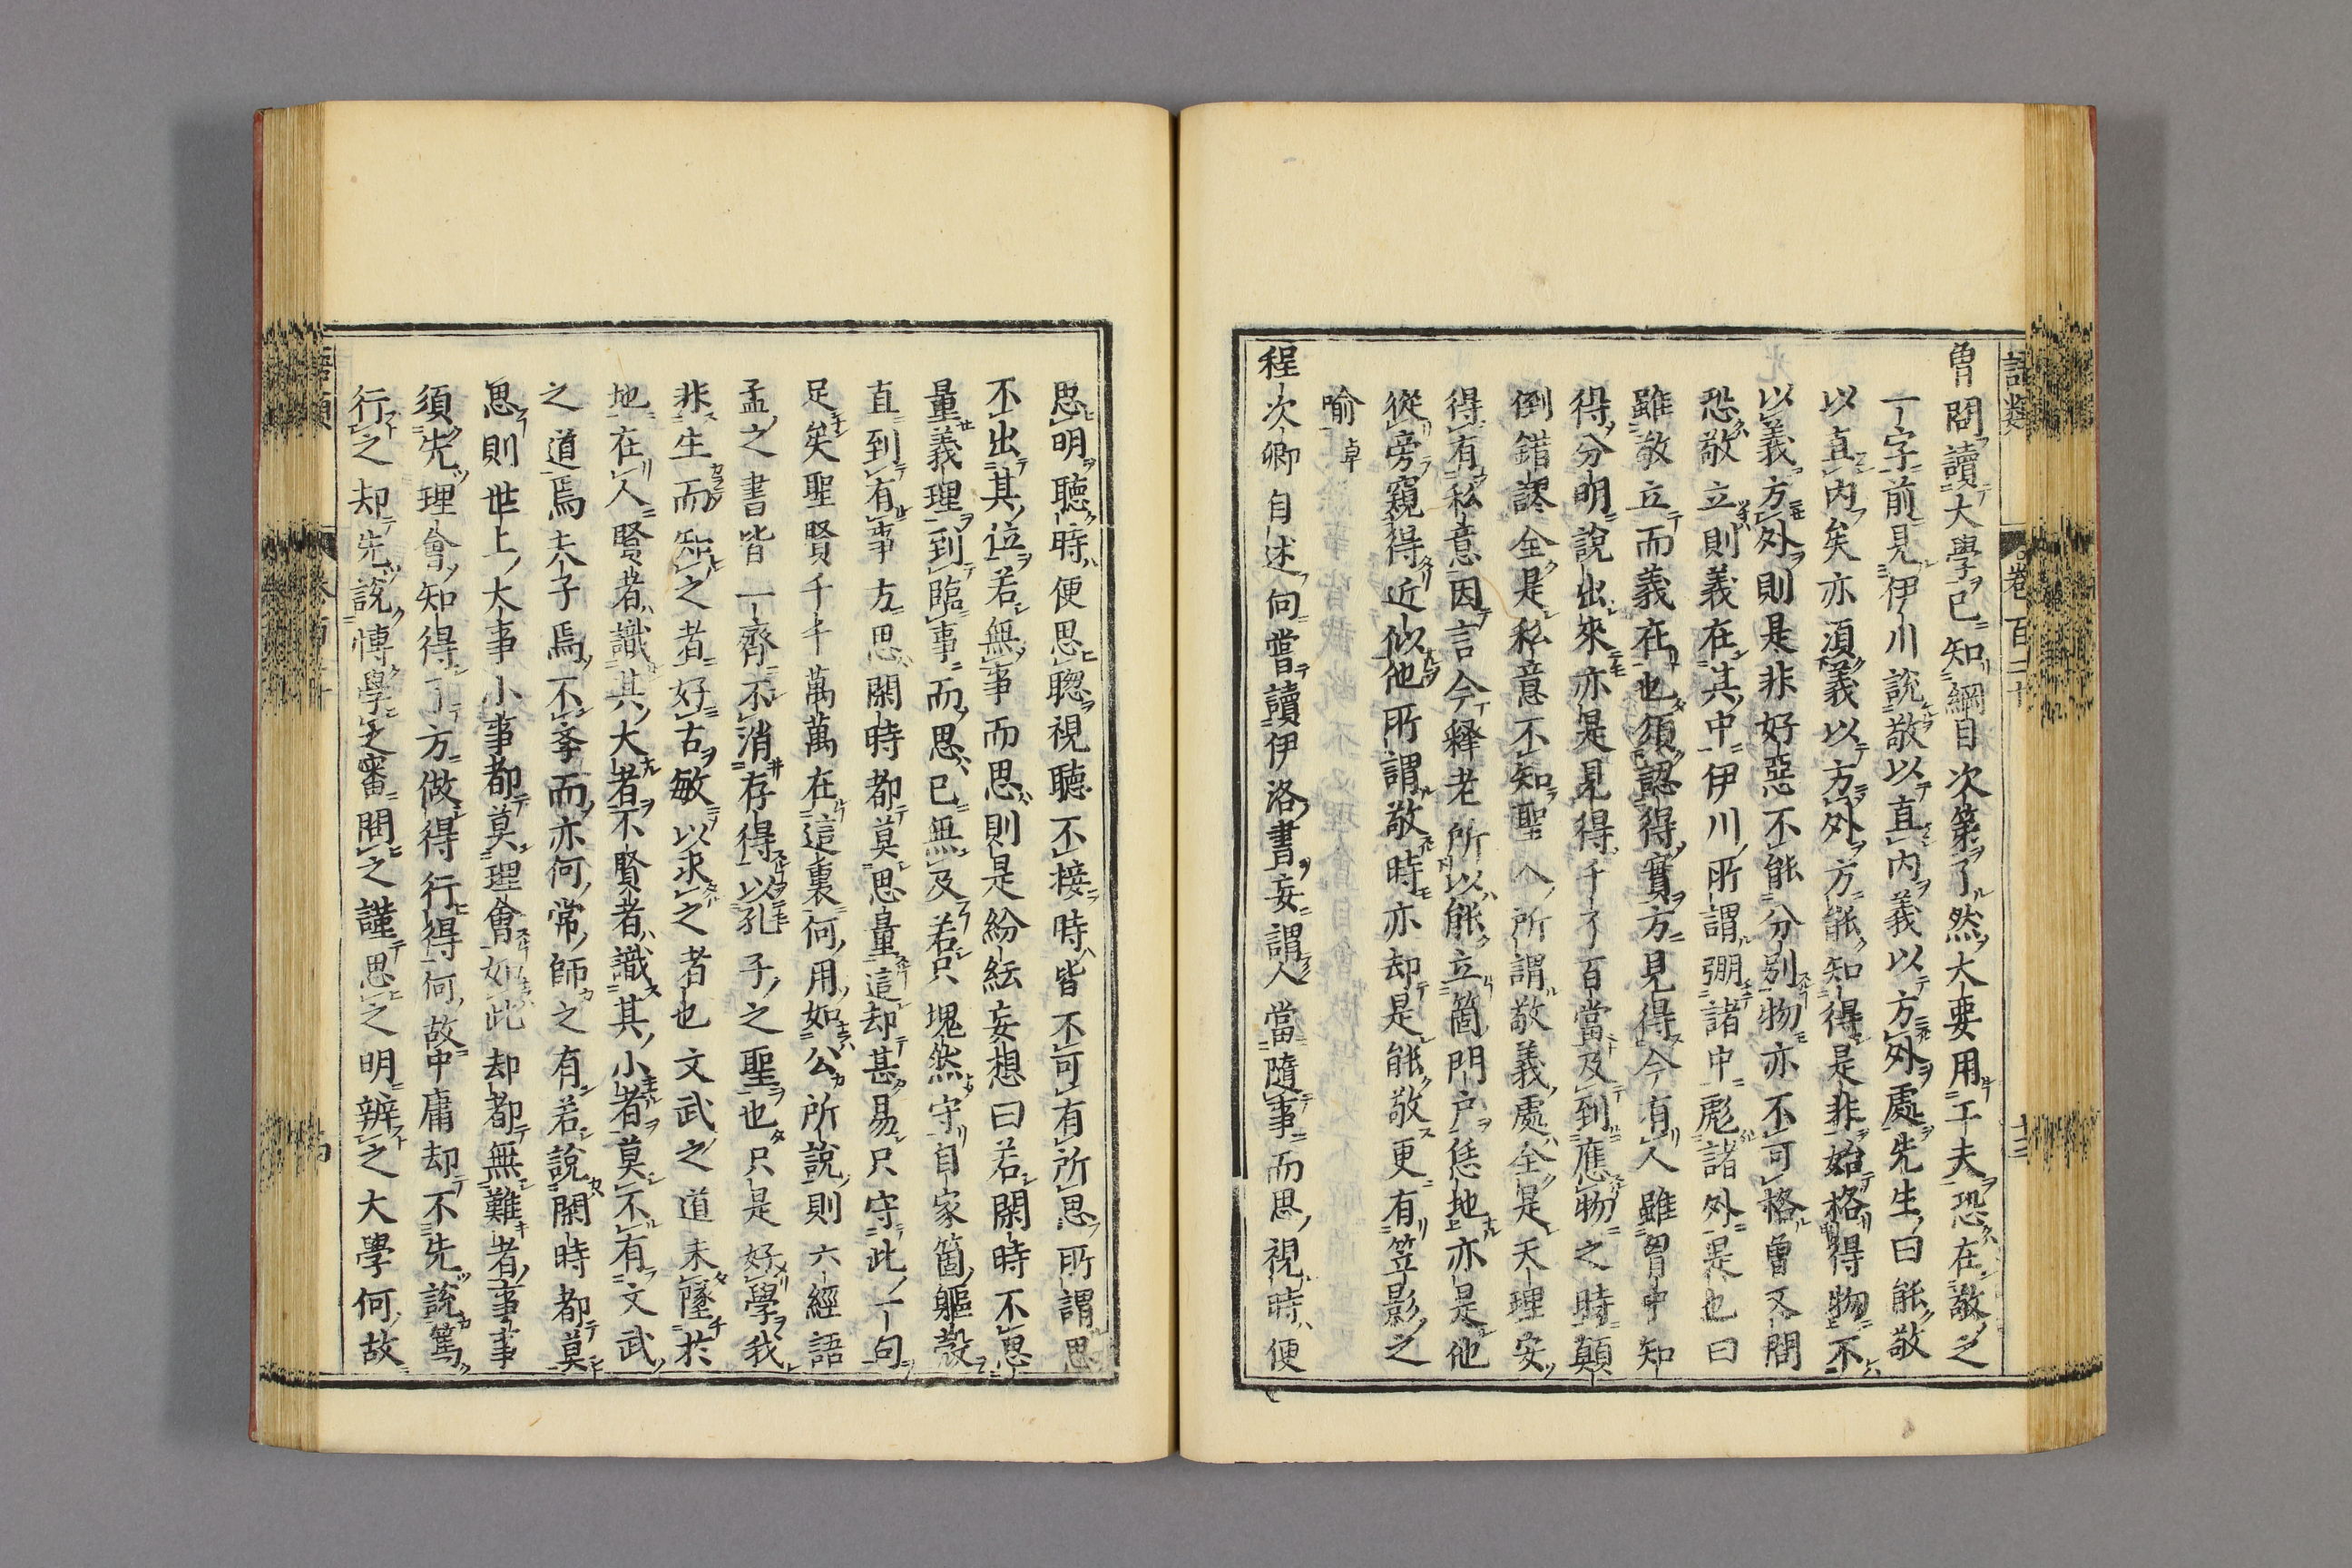 語類
卷百二十
十三
曾問讀大學已知綱目次第了然大要用工夫恐在敬之
一字前見伊川說敬以直内義以方外處先生曰能敬
以直内矣亦須義以方外方能知得是非始格得物不
以義方外則是非好惡不能分別物亦不可格曾又問
恐敬立則義在其中伊川所謂弸諸中彪諸外是也曰
雖敬立而義在也須認得實方見得今有人雖胷中知
得分明說出來亦是見得千了百當及到應物之時顛
倒錯謬全是私意不知聖人所謂敬義處全是天理安
得有私意因言今釋老所以能立箇門戶恁地亦是他
從旁窺得近似他所謂敬時亦却是能敬更有笠影之
喻卓
程次卿自述向嘗讀伊洛書妄謂人當隨事而思視時便
思明聽時便思聦視聽不接時皆不可有所思所謂思
不出其位若無事而思則是紛紜妄想曰若閑時不思
量義理到臨事而思已無及若只塊然守自家箇軀殼
直到有事方思閑時都莫思量這却甚易只守此一句
足矣聖賢千千萬萬在這裏何用如公所說則六經語
孟之書皆一齊不消存得以孔子之聖也只是好學我
非生而知之者好古敏以求之者也文武之道未墜於
地在人賢者識其大者不賢者識其小者莫不有文武
之道焉夫子焉不學而亦何常師之有若說閑時都莫
思則世上大事小事都莫理會如此却都無難者事事
須先理會知得了方做得行得何故中庸却不先說篤
行之却先說博學之審問之謹思之明辨之大學何故